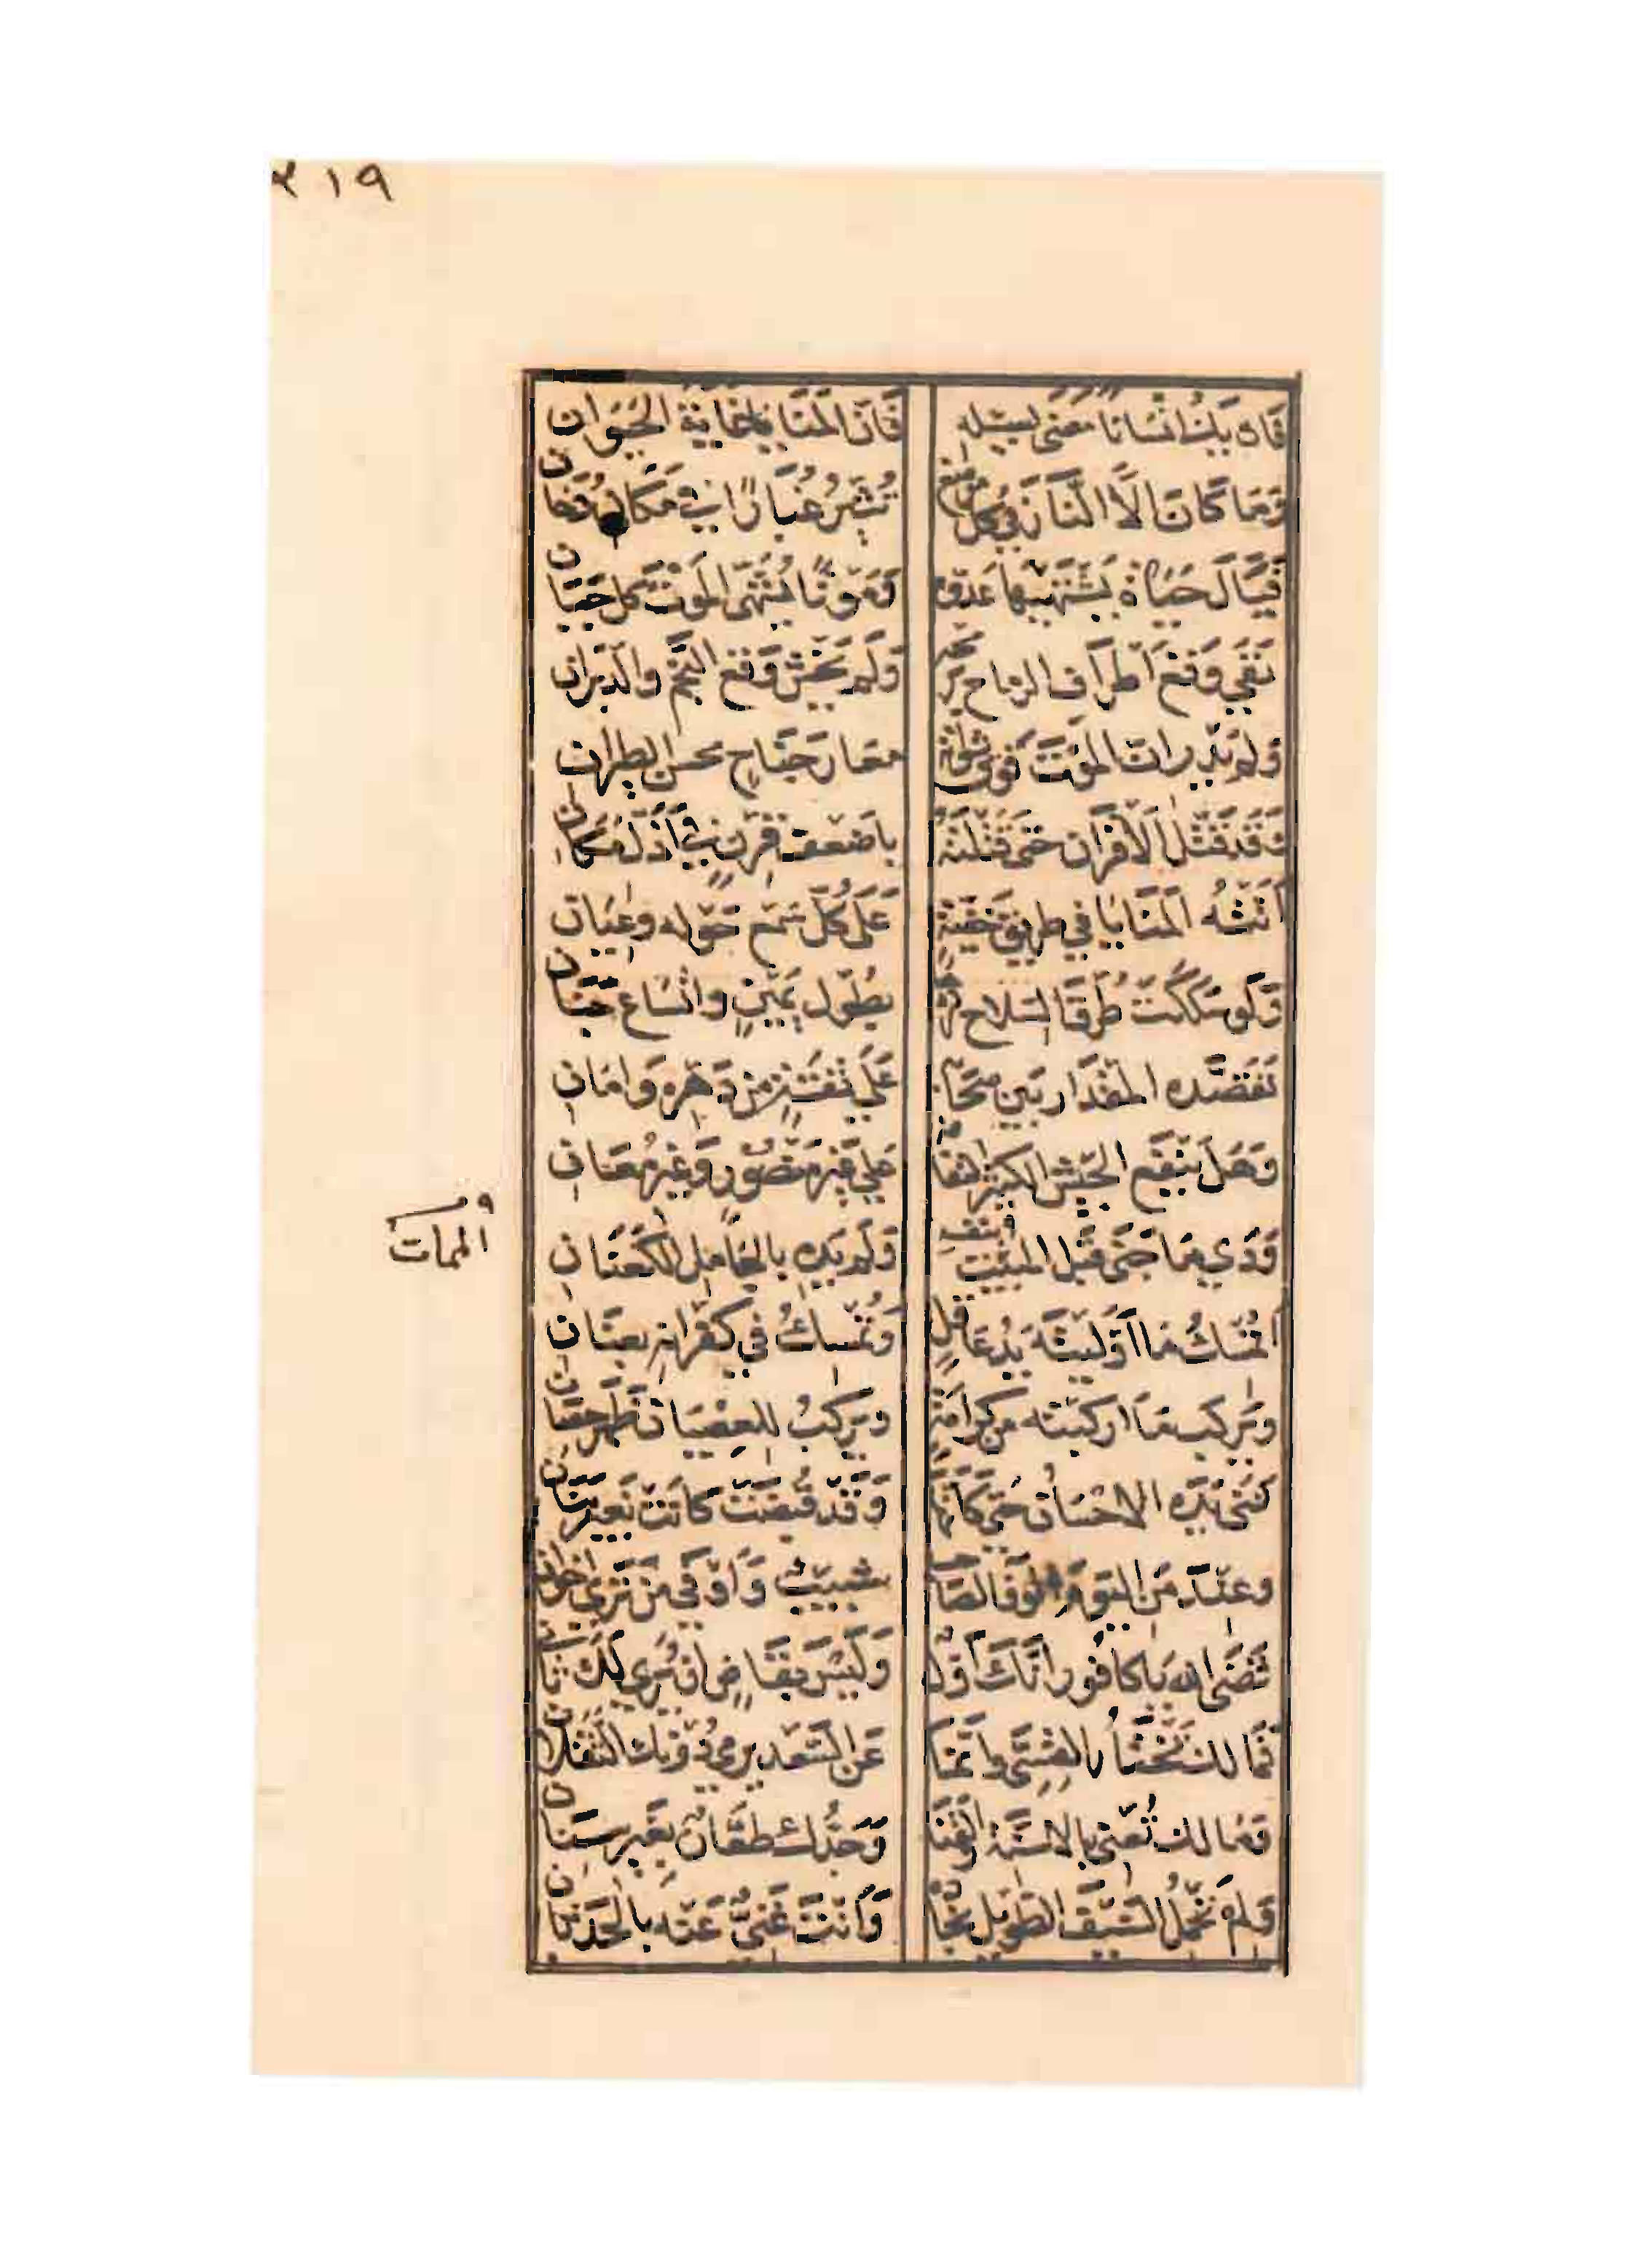 ٢١٩
فان يك انسانا مضى لسبيله فان المنايا غاية الحيوان
وما كان الا النار في كل موضع تثير غبارا في مكان دخان
فنال حياة يشتهيها عدوه وموتا يشهي الموت كل جبان
نفى وقع اطراف الرماح برمحه ولم يخش وقع النجم والدبران
ولم يدر ان الموت فوق شواته معار جناح محسن الطيران
وقد قتل الاقران حتى قتلته باضعف قرن في اذل مكان
اتته المنايا في طريق خفية على كل سمع حوله وعيان
ولو سلكت طرق السلاح لردها بطول يمين واتساع جنان
تقصده المقدار بين صحابه على ثقة من دهره وامان
وهل ينفع الجيش الكثير التفافه على غير منصور وغير معان
ودي ما جنى قبل المبيت بنفسه ولم يده بالجامل العكنان
الممات
اتمسك ما اوليته يد عاقل وتمسك في كفرانه بعنان
ويركب ما اركبته من كرامة ويركب للعصيان ظهر حصان
ثنى يده الاحسان حتى كانها وقد قبضت كانت بغير بنان
وعند من اليوم الوفا لصاحب شبيب واوفى من ترى اخوان
قضى الله يا كافور انك اول وليس بقاض ان يرى لك ثان
فما لك تختار القسي وانما عن السعد يرمي دونك الثقلان
وما لك تعنى بالاسنة والقنا وجدك طعان بغير سنان
ولم تحمل السيف الطويل نجاده وانت غني عنه بالحدثان